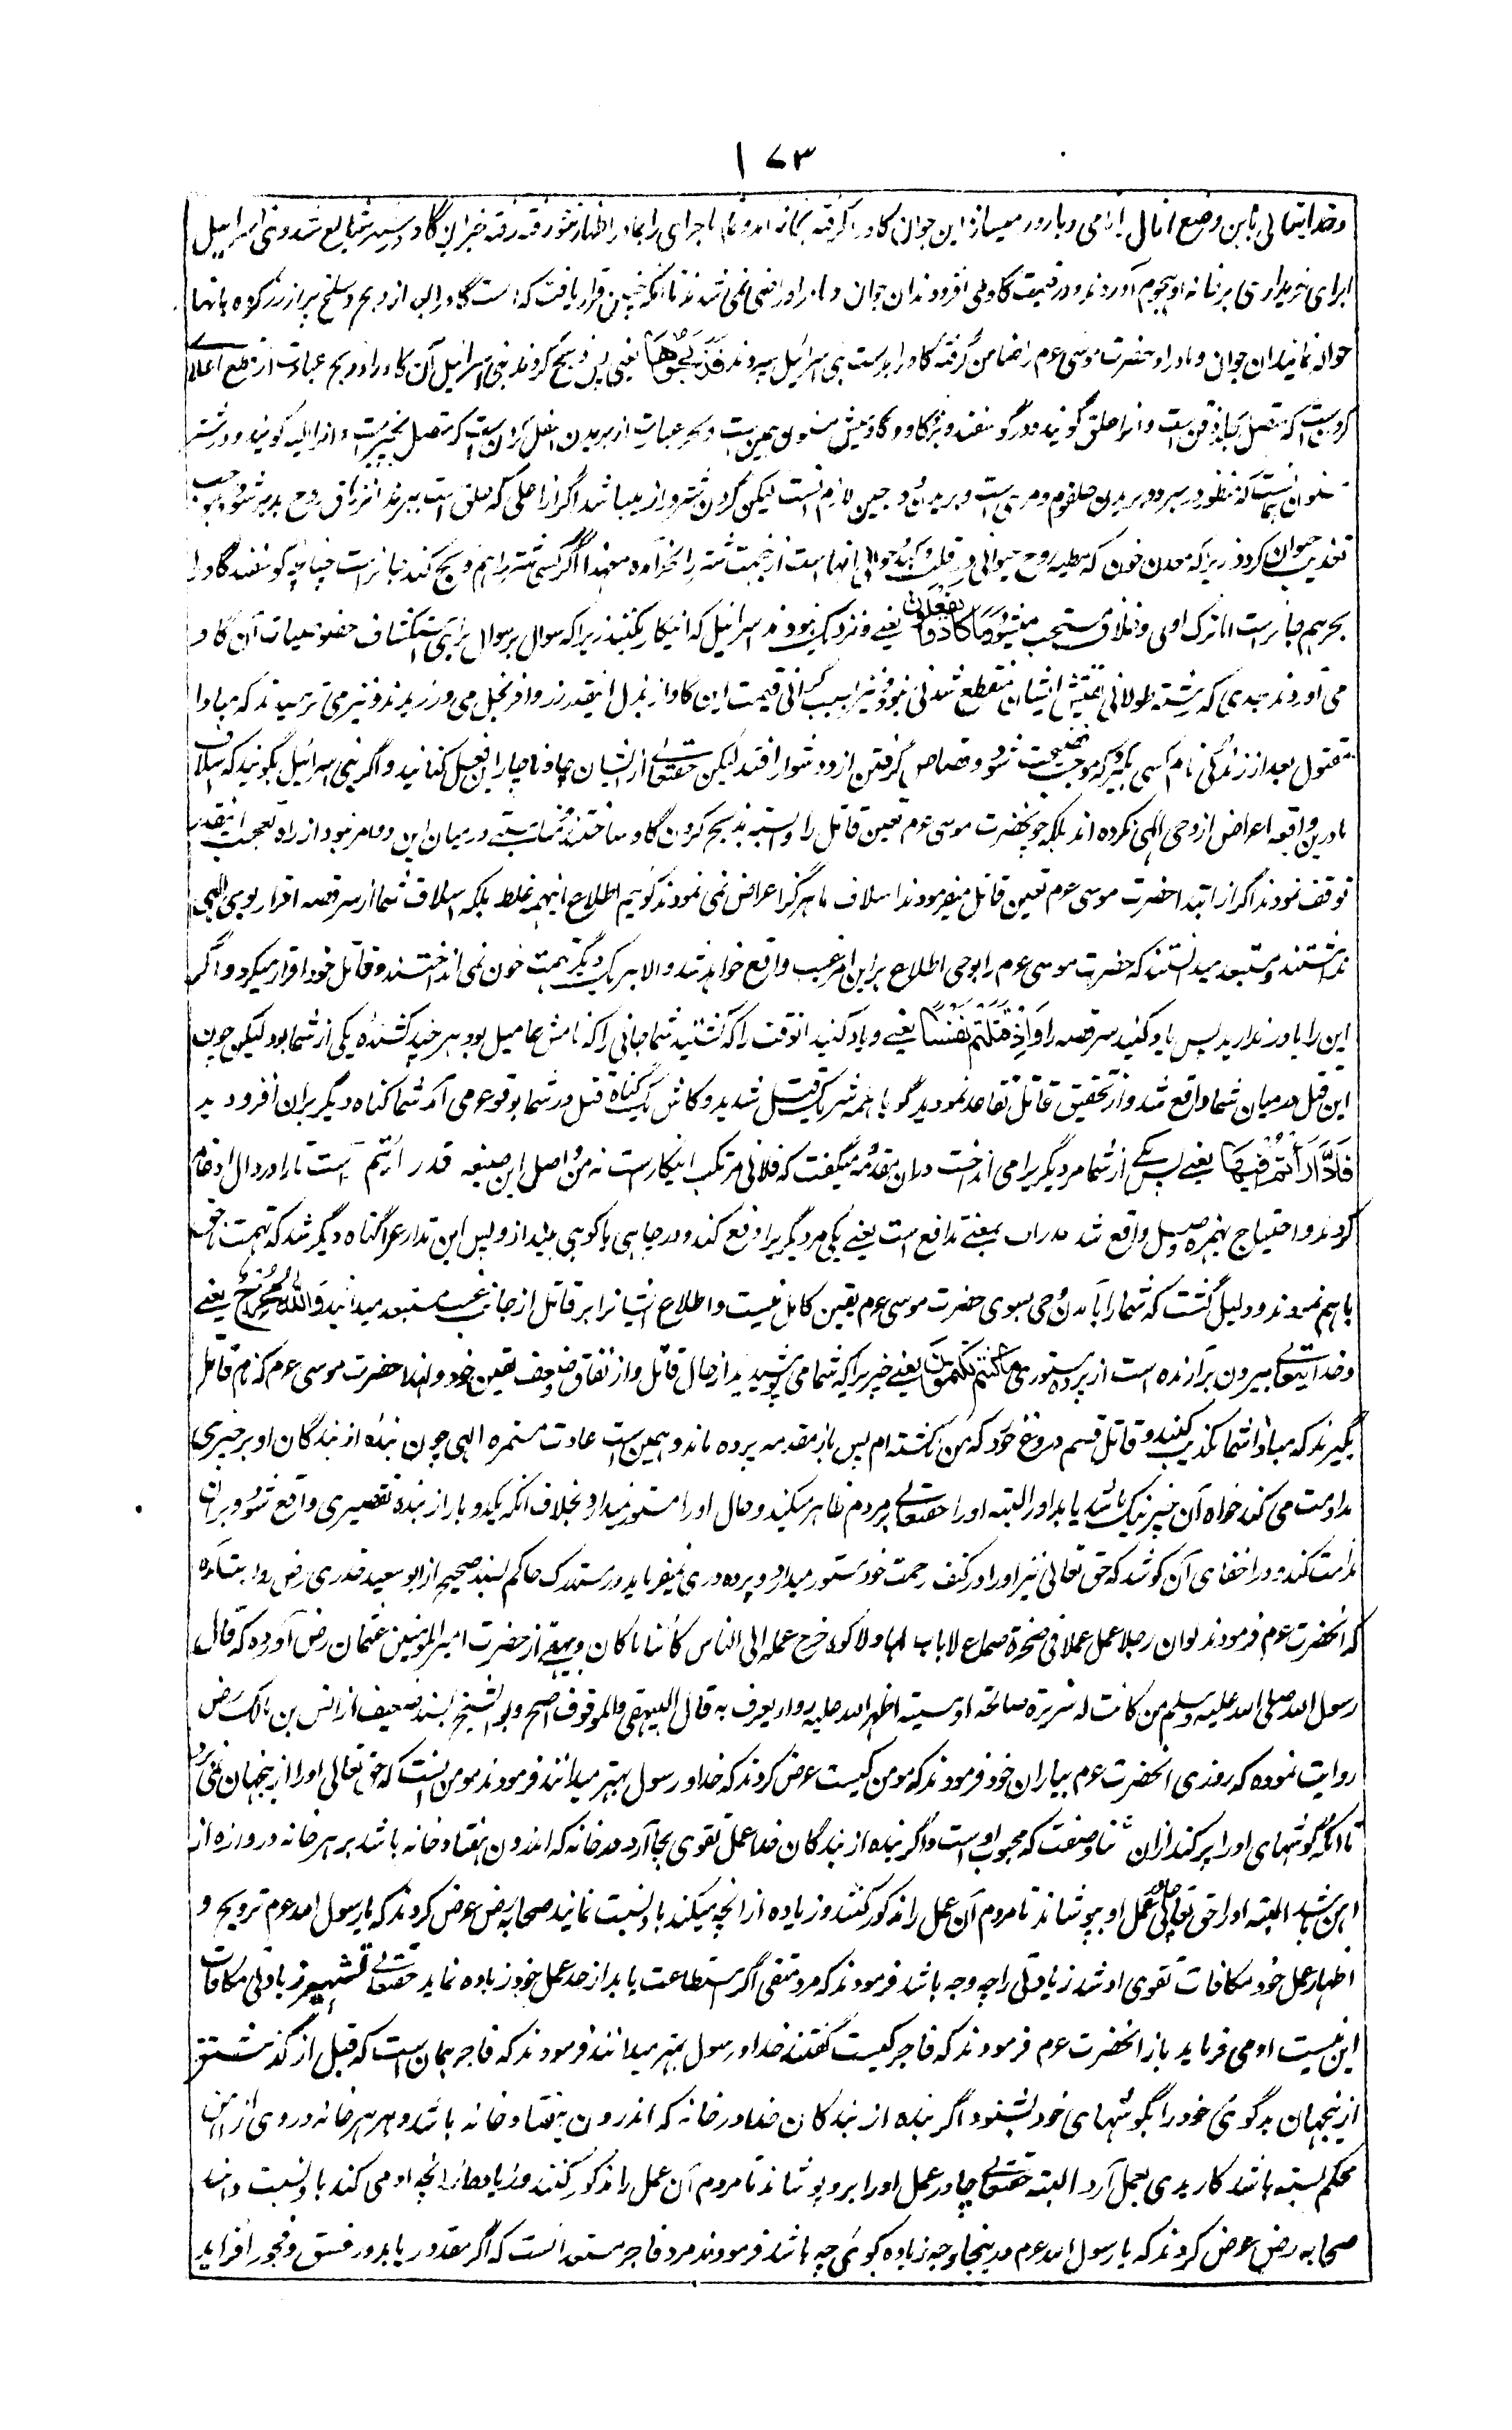 ١٧٣
وخدایتعالی باین وضع اموال بارامی و بارور میسازد این جوان گاو را گرفته بخانه آمد و تمام ماجرای را بمادر اظهار نمود رفته رفته خبر این گاو و سیر شایع شد و بنی اسراییل
برای خریداری بر خانه او هجوم آوردند و در قیمت گاو می افزودند آن جوان و مادر او راضی نمی شدند تا آنکه چنین قرار یافت که پوست گاو را بعد از ذبح و سلخ پر از زر کرده بآنها
حواله نمایند آن جوان و مادر او حضرت موسی عم را ضامن گرفته گاو را بدست بنی اسرائیل سپردند فَذَبَحُوهَا یعنی پس ذبح کردند بنی اسرائیل آن گاو را و ذبح عبارت از قطع اعلای
گردن است که متصل بجانب ذقن است و آنرا حلق گویند و در گوسفند و بز و گاو و گاومیش مسنون همین است و نحر عبارت از بریدن اسفل گردن است که متصل بسینه است و آنرا لبه گویند و در شتر
مسنون آنست که منظور در هر دو بریدن حلقوم و مری است و بریدن ودجین لازم است لیکن گردن شتر دراز میباشد اگر از اعلی که حلق است ببرند انزهاق روح بدیر شود و موجب
تعذیب حیوان گردد زیرا که معدن خون که مطیه روح حیوانی است در قلب و کبد و حوالی آنها است ازینجهت شتر را نحر آمده معهذا اگر کسی شتر را هم ذبح کند جایز است چنانچه گوسفند و گاو را
نحر هم جایز است اما ترک اولی و خلاف مستحب میشود وَمَا كَادُوا يَفْعَلُونَ یعنی و نزدیک نبودند بنی اسرائیل که این کار بکنند زیرا که سوال بر سوال برای استکشاف خصوصیات آن گاو
می آوردند بحدی که رشته طولانی تفتیش ایشان منقطع شدنی نبود و نیز بسبب گرانی قیمت این گاو از بذل اینقدر زر وافر بخل می ورزیدند و نیز می ترسیدند که مبادا
مقتول بعد از زندگی نام کسی بگیرد که موجب فضیحت شود و قصاص گرفتن از و دشوار افتد لیکن حقتعالی از ایشان چار و ناچار این فعل کنانید و اگر بنی اسرائیل بگویند که اسلاف
ما درین واقعه اعراض از وحی الهی نکرده اند بلکه چون حضرت موسی عم تعین قاتل را وابسته بذبح کردن گاو ساختند و مناسبتی در میان این دو امر نبود از راه تعجب اینقدر
توقف نمودند اگر از ابتدا حضرت موسی عم تعین قاتل میفرمودند اسلاف ما هرگز اعراض نمی نمودند گوئیم اطلاع اینهمه غلط بلکه اسلاف شما از سر قصه اقرار بوحی الهی
نداشتند و مستبعد میدانستند که حضرت موسی عم را بوحی اطلاع برین امر غیب واقع خواهد شد و الا بر یک دیگر تهمت خون نمی انداختند و قاتل خود اقرار میکرد و اگر
این را باور ندارید پس یاد کنید سر قصه را وَإِذْ قَتَلْتُمْ نَفْسًا یعنی و یاد کنید آنوقت را که کشتید شما جانی را که نامش عامیل بود هر چند کشنده یکی از شما بود لیکن چون
این قتل در میان شما واقع شد و از تحقیق قاتل تقاعد نمودید گویا همه شریک قتل شدید و کاش یک گناه قتل در شما بوقوع می آمد شما گناه دیگر بران افزودید
فَادَّارَأْتُمْ فِيهَا یعنی پس یکی از شما مر دیگریرا می انداخت دران مقدمه میگفت که فلانی مرتکب اینکار است نه من و اصل این صیغه تدارأتم است تا را در دال ادغام
کردند و احتیاج بهمزه وصل واقع شد تدارأ بمعنی تدافع است یعنی یکی مر دیگریرا دفع کند و در چاهی یا کوهی بیندازد پس این تدارء گناه دیگر شد که تهمت ناحق
با هم نمودند و دلیل گشت که شما را بآمدن وحی بسوی حضرت موسی عم یقین کامل نیست و اطلاع ایشانرا بر قاتل از جانب غیب مستبعد میدانید وَاللَّهُ مُخْرِجٌ یعنی
وخدایتعالی بیرون برآرنده است از پرده مستوری مَا كُنْتُمْ تَكْتُمُونَ یعنی چیزیرا که شما می پوشیدید از حال قاتل و از نفاق و ضعف یقین خود و لهذا حضرت موسی عم که نام قاتل
بگیرند که مبادا شما تکذیب کنید و قاتل قسم دروغ خورد که من نکشته ام پس باز مقدمه بپرده ماند و همین است عادت مستمره الهی چون بنده از بندگان او بر چیزی
مداومت می کند خواه آن چیز نیک باشد یا بد او را البته او را حقتعالی بر مردم ظاهر میکند و حال او را مستور نمیدارد بخلاف آنکه یکدو بار از بنده تقصیری واقع شود و بران
ندامت کند و در اخفای آن کوشد که حق تعالی نیز او را در کنف رحمت خود مستور میدارد و پرده دری نمیفرماید در مستدرک حاکم بسند صحیح از ابو سعید خدری رض روایت آمده
که آنحضرت عم فرمودند لو ان رجلا عمل عملا فی صخرة صماء لا باب لها ولا کوة خرج عمله الی الناس کائنا ما کان و بیهقی از حضرت امیر المومنین عثمان رض آورده که قال
رسول الله صلی الله علیه وسلم من کانت له سریرة صالحة او سیئة اظهر الله علیه رداء یعرف به قال البیهقی والموقوف اصح و ابو الشیخ بسند ضعیف از انس بن مالک رض
روایت نموده که روزی آنحضرت عم بیاران خود فرمودند که مومن کیست عرض کردند که خدا و رسول بهتر میدانند فرمودند مومن آنست که حق تعالی او را ازینجهان نمی برد
تا آنکه گوشهای او را پر کند از ان ثنا و صفت که محبوب اوست و اگر بنده از بندگان خدا عمل تقوی بجا آرد در خانه که اندرون هفتاد خانه باشد بر هر خانه دروازه از
آهن باشد البته او را حق تعالی چادر عمل او بپوشاند تا مردم آن عمل را مذکور کنند و زیاده از آنچه میکند باو نسبت نمایند صحابه رض عرض کردند که یا رسول الله عم ترویج و
اظهار عمل خود مکافات تقوی او شد زیادتی را چه وجه باشد فرمودند که مرد متقی اگر استطاعت یابد از حد عمل خود زیاده نماید حقتعالی تشهیر زیادتی مکافات
این نیت او می فرماید باز آنحضرت عم فرمودند که فاجر کیست گفتند خدا و رسول بهتر میدانند فرمودند که فاجر همان است که قبل از گذشتن
ازینجهان بدگوئی خود را بگوشهای خود بشنود اگر بنده از بندگان خدا در خانه که اندرون هفتاد خانه باشد و بر هر خانه دروی از آهن
محکم بسته باشد کار بدی بعمل آرد البته حقتعالی چادر عمل او را برو پوشاند تا مردم آن عمل را مذکور کنند و زیاده از آنچه او می کند باو نسبت دهند
صحابه رض عرض کردند که یا رسول الله عم در اینجا وجه زیاده گوئی چه باشد فرمودند مرد فاجر مستعد آنست که اگر مقدور یابد در فسق و فجور افزاید